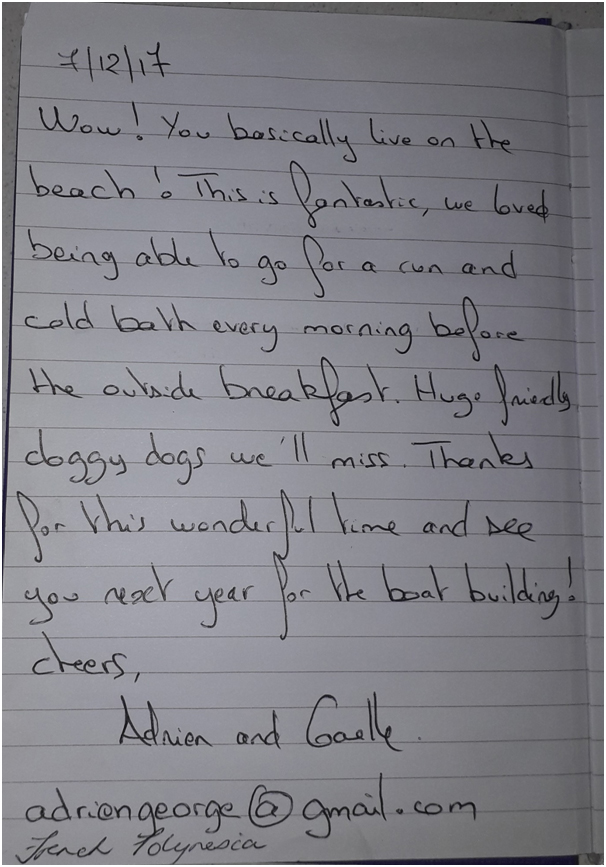 7/12/17
Wow! You basically live on the
beach! This is fantastic, we loved
being able to go for a run and
cold bath every morning before
the outside breakfast. Huge friendly
doggy dogs we'll miss. Thanks
for this wonderful time and see
you next year for the boat building!
cheers,
Adrien and Gaelle.
adriengeorge@gmail.com
French Polynesia